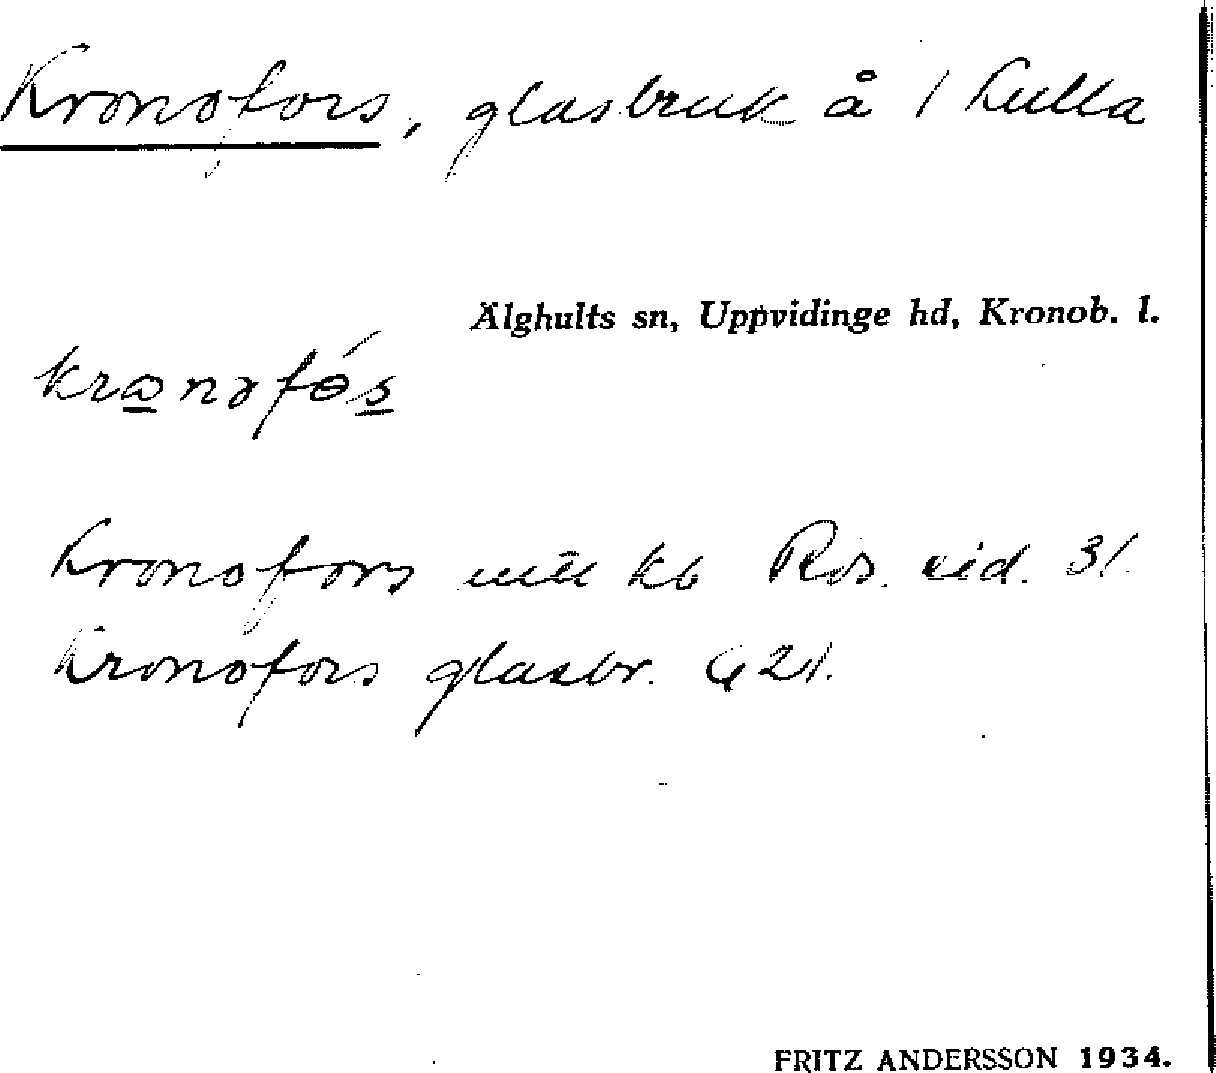 Kronofors, glasbruk å 1 Kulla
Älghults sn, Uppvidinge hd, Kronob. l.
krɷnəfɵ́s
Kronofors kb Ros. 31.
Kronofors glasbr. G 21.
FRITZ ANDERSSON 1934.